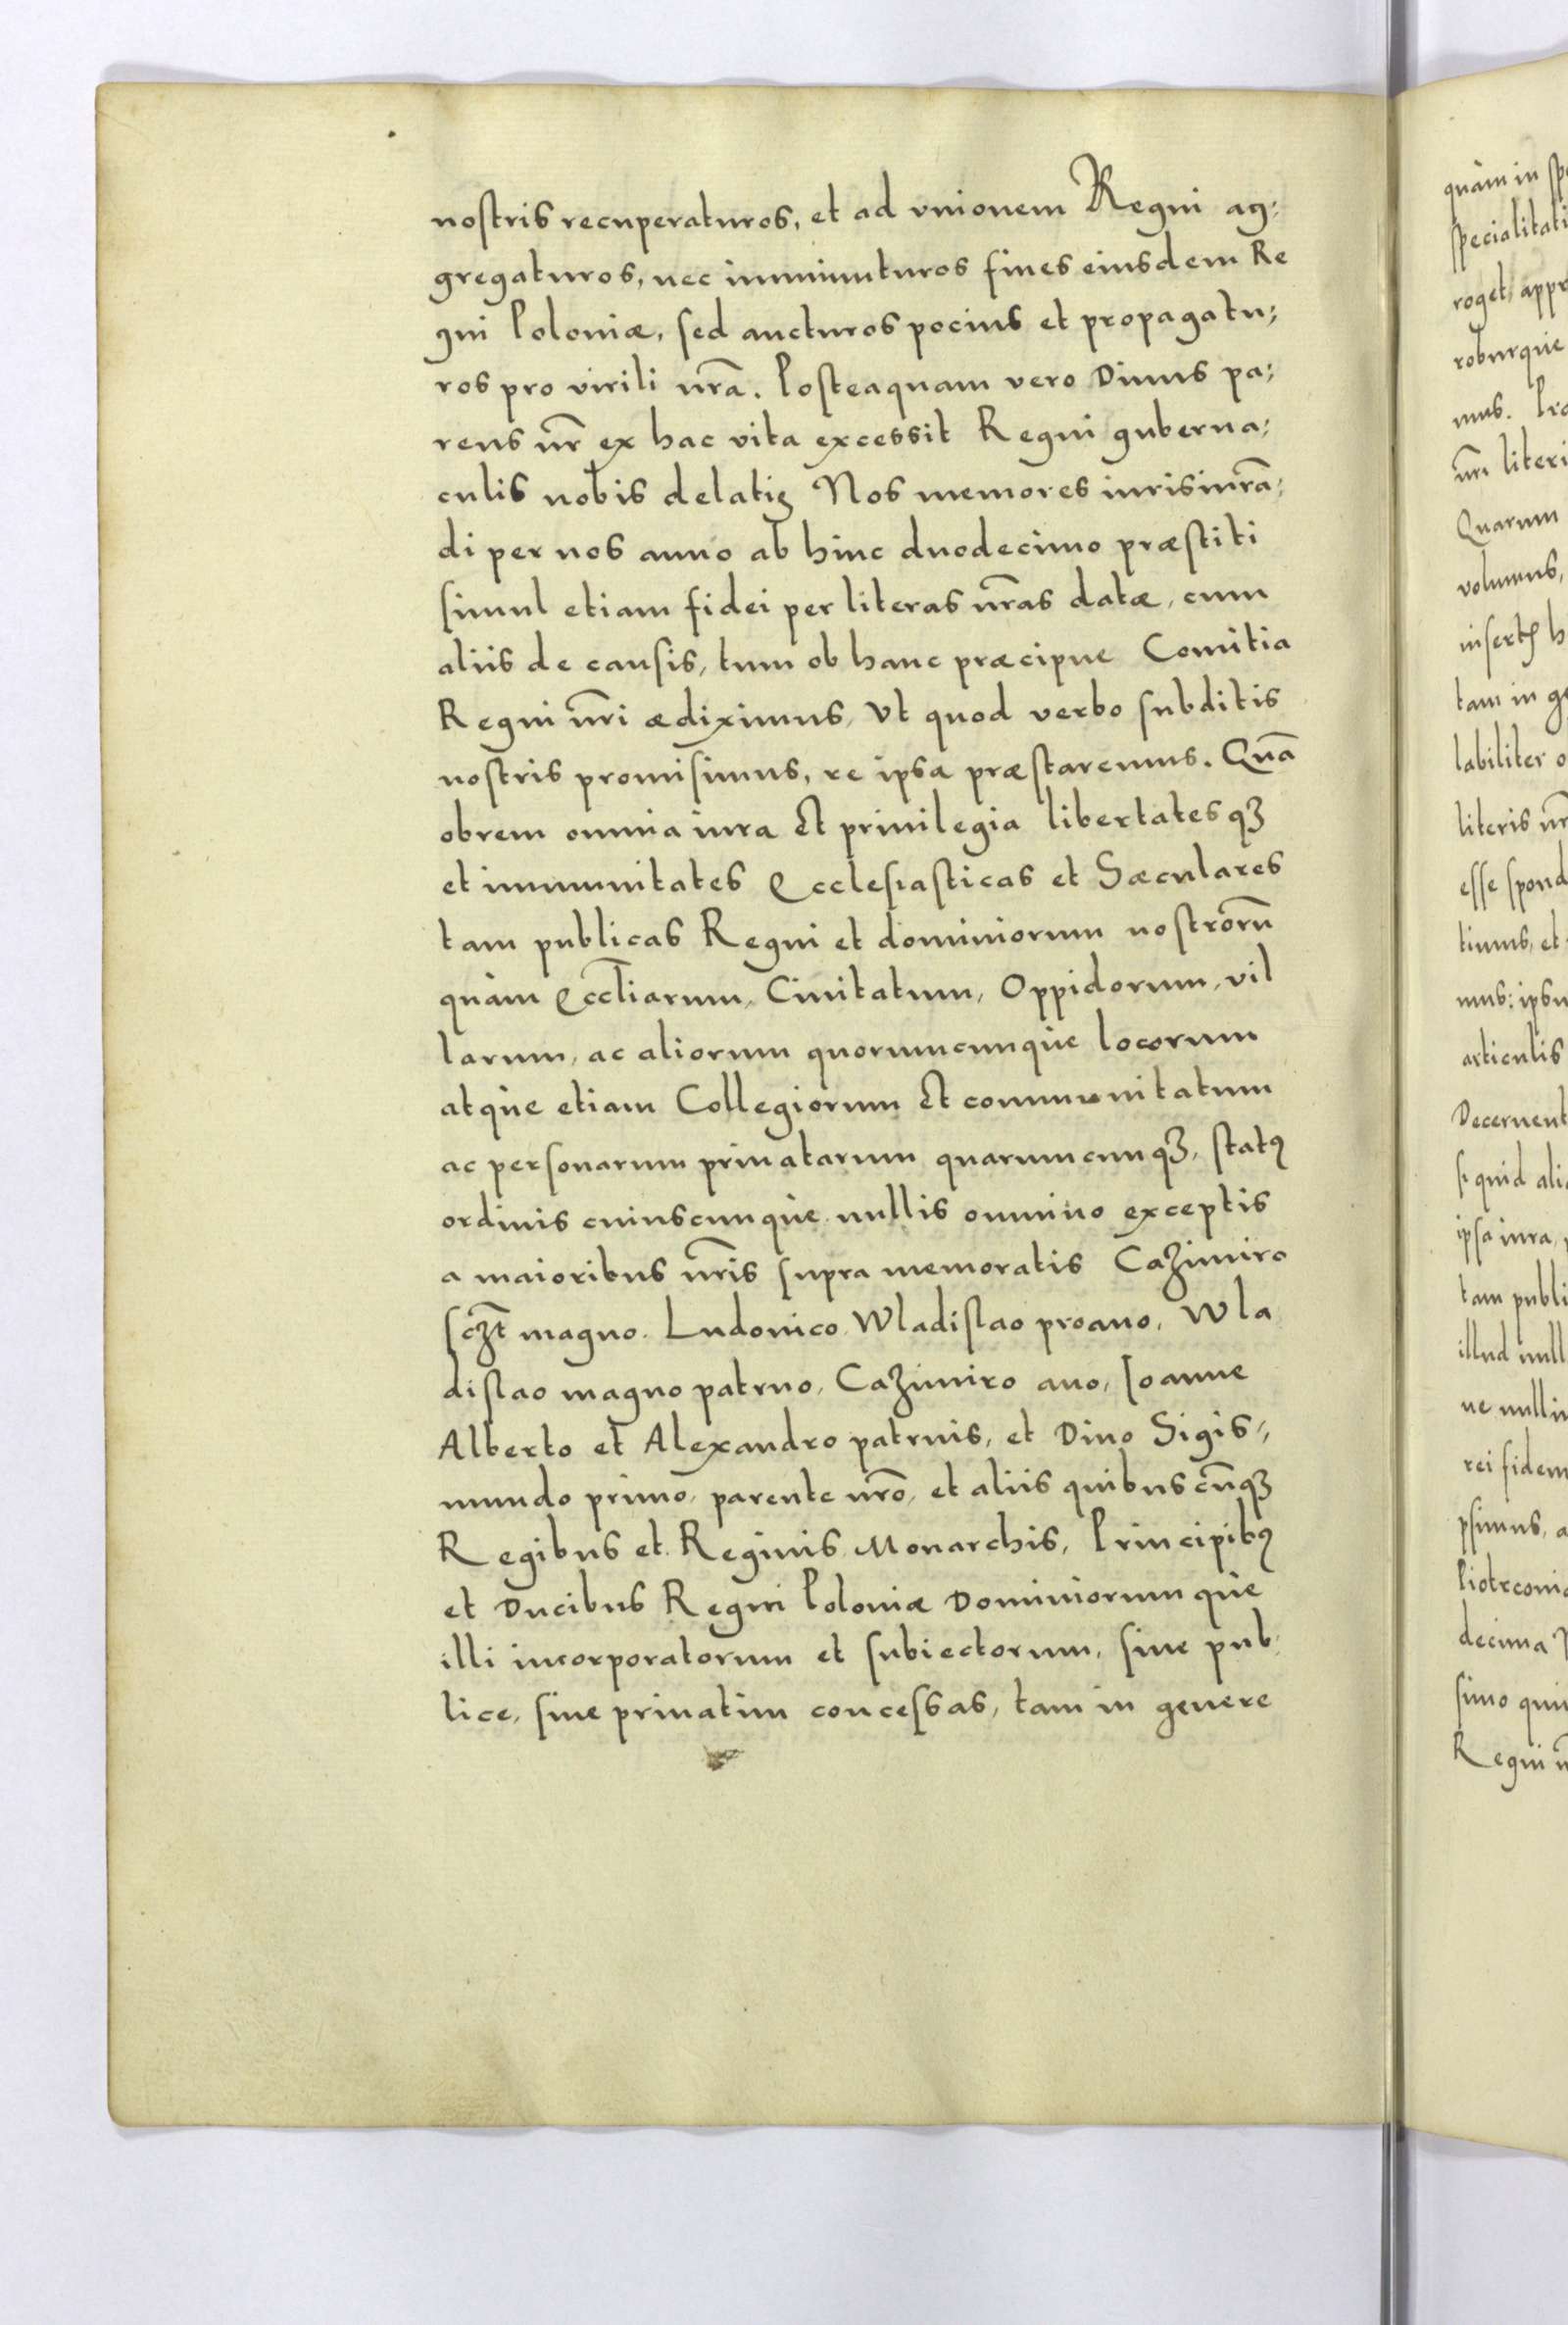 nostris recuperaturos, et ad vnionem Regni ag:
gregaturos, nec imminuturos fines eiusdem Re
gni Poloniæ, sed aucturos pocius et propagatu:
ros pro virili nrã. Posteaquam vero Diuus pa:
rens nr̄ ex hac vita excessit Regni guberna:
culis nobis delatis Nos memores iurisiurã:
di per nos anno ab hinc duodecimo præstiti
simul etiam fidei per literas nr̄as datæ, cum
aliis de causis, tum ob hanc præcipue Comitia
Regni nr̄i ædiximus, Vt quod verbo subditis
nostris promisimus, re ipsa præstaremus. Quã
obrem omnia iura Et priuilegia libertatesqꝫ
et immunitates Ecclesiasticas et Sæculares
tam publicas Regni et dominiorum nostrorũ
quàm Eccl̄iarum, Ciuitatum, Oppidorum, vil
larum, ac aliorum quorumcunque locorum
atque etiam Collegiorum Et communitatum
ac personarum priuatarum quarumcunqꝫ, statꝰ
ordinis cuiuscunque nullis omnino exceptis
a maioribus nr̄is supra memoratis Cazimiro
scꝫt̄ magno. Ludouico, Wladislao proauo, Wla
dislao magno patruo, Cazimiro auo, Ioanne
Alberto et Alexandro patruis, et Diuo Sigis:
mundo primo, parente nr̄o, et aliis quibuscũqꝫ
Regibus et Reginis Monarchis, Principibꝰ
et Ducibus Regni Poloniæ Dominiorumque
illi incorporatorum et subiectorum, siue pub:
lice, siue priuatim concessas, tam in genere
quàm in
specialitati
roget, appr
roburque
mus.
nr̄i literi
Quarum
volumus,
h
tam in ge
labiliter o
literis nr̄
esse spond
tiuus, et
mus: ipsu
articulis
Decernent
si quid ali
ipsa iura,
tam publi
illud null
ne nulliu
rei fidem
psimus, a
Piotrconi
decima
simo qui
Regni n